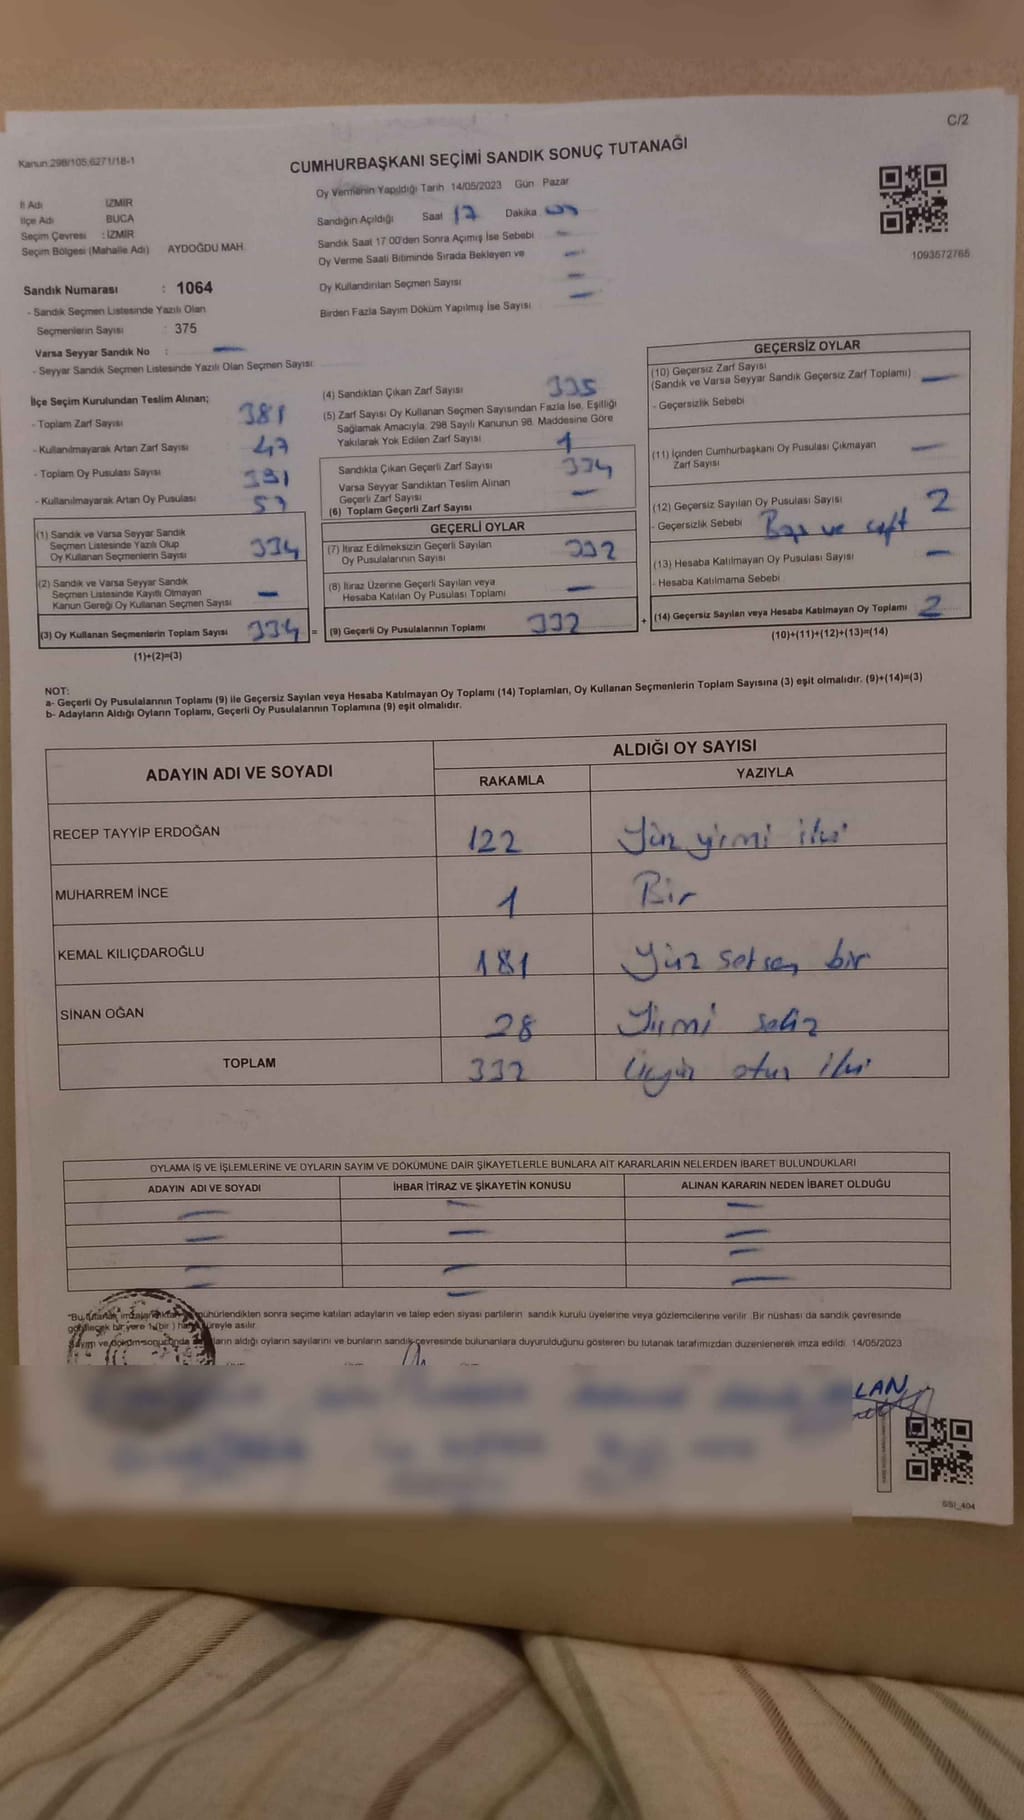 C/2
Kanun:298/105,6271/18-1
CUMHURBAŞKANI SEÇİMİ SANDIK SONUÇ TUTANAĞI
Oy Vermenin Yapıldığı Tarih 14/05/2023 Gün Pazar
İl Adı İZMİR
İlçe Adı BUCA
Seçim Çevresi : İZMİR
Seçim Bölgesi (Mahalle Adı) AYDOĞDU MAH.
Sandığın Açıldığı Saat 17 Dakika
Sandık Saat 17:00'den Sonra Açımış İse Sebebi —
Oy Verme Saati Bitiminde Sırada Bekleyen ve —
Oy Kullandırılan Seçmen Sayısı —
Birden Fazla Sayım Döküm Yapılmış İse Sayısı —
1093572765
Sandık Numarası : 1064
- Sandık Seçmen Listesinde Yazılı Olan
Seçmenlerin Sayısı : 375
Varsa Seyyar Sandık No : —
- Seyyar Sandık Seçmen Listesinde Yazılı Olan Seçmen Sayısı:
İlçe Seçim Kurulundan Teslim Alınan;
- Toplam Zarf Sayısı 381
- Kullanılmayarak Artan Zarf Sayısı 47
- Toplam Oy Pusulası Sayısı 391
- Kullanılmayarak Artan Oy Pusulası 57
(1) Sandık ve Varsa Seyyar Sandık
Seçmen Listesinde Yazılı Olup
Oy Kullanan Seçmenlerin Sayısı 334
(2) Sandık ve Varsa Seyyar Sandık
Seçmen Listesinde Kayıtlı Olmayan
Kanun Gereği Oy Kullanan Seçmen Sayısı —
(3) Oy Kullanan Seçmenlerin Toplam Sayısı 334 =
(1)+(2)=(3)
(4) Sandıktan Çıkan Zarf Sayısı 335
(5) Zarf Sayısı Oy Kullanan Seçmen Sayısından Fazla İse, Eşitliği
Sağlamak Amacıyla, 298 Sayılı Kanunun 98. Maddesine Göre
Yakılarak Yok Edilen Zarf Sayısı 1
Sandıkta Çıkan Geçerli Zarf Sayısı 334
Varsa Seyyar Sandıktan Teslim Alınan
Geçerli Zarf Sayısı —
(6) Toplam Geçerli Zarf Sayısı
GEÇERLİ OYLAR
(7) İtiraz Edilmeksizin Geçerli Sayılan
Oy Pusulalarının Sayısı 332
(8) İtiraz Üzerine Geçerli Sayılan veya
Hesaba Katılan Oy Pusulası Toplamı —
(9) Geçerli Oy Pusulalarının Toplamı 332 +
GEÇERSİZ OYLAR
(10) Geçersiz Zarf Sayısı
(Sandık ve Varsa Seyyar Sandık Geçersiz Zarf Toplamı) —
- Geçersizlik Sebebi
(11) İçinden Cumhurbaşkanı Oy Pusulası Çıkmayan
Zarf Sayısı —
(12) Geçersiz Sayılan Oy Pusulası Sayısı 2
- Geçersizlik Sebebi Boş ve
(13) Hesaba Katılmayan Oy Pusulası Sayısı —
- Hesaba Katılmama Sebebi
(14) Geçersiz Sayılan veya Hesaba Katılmayan Oy Toplamı 2
(10)+(11)+(12)+(13)=(14)
NOT:
a- Geçerli Oy Pusulalarının Toplamı (9) ile Geçersiz Sayılan veya Hesaba Katılmayan Oy Toplamı (14) Toplamları, Oy Kullanan Seçmenlerin Toplam Sayısına (3) eşit olmalıdır. (9)+(14)=(3)
b- Adayların Aldığı Oyların Toplamı, Geçerli Oy Pusulalarının Toplamına (9) eşit olmalıdır.
ADAYIN ADI VE SOYADI ALDIĞI OY SAYISI
RAKAMLA YAZIYLA
RECEP TAYYİP ERDOĞAN 122 Yüz yirmi iki
MUHARREM İNCE 1 Bir
KEMAL KILIÇDAROĞLU 181 Yüz seksen bir
SİNAN OĞAN 28 Yirmi sekiz
TOPLAM 332 Üçyüz otuz iki
OYLAMA İŞ VE İŞLEMLERİNE VE OYLARIN SAYIM VE DÖKÜMÜNE DAİR ŞİKAYETLERLE BUNLARA AİT KARARLARIN NELERDEN İBARET BULUNDUKLARI
ADAYIN ADI VE SOYADI İHBAR İTİRAZ VE ŞİKAYETİN KONUSU ALINAN KARARIN NEDEN İBARET OLDUĞU
— — —
— — —
— — —
— — —
*Bu tutanak mühürlendikten sonra seçime katılan adayların ve talep eden siyasi partilerin sandık kurulu üyelerine veya gözlemcilerine verilir. Bir nüshası da sandık çevresinde
görülecek bir yere 1 (bir) süreyle asılır.
Sayım ve döküm sonucunda aldığı oyların sayılarını ve bunların sandık çevresinde bulunanlara duyurulduğunu gösteren bu tutanak tarafımızdan düzenlenerek imza edildi. 14/05/2023
LAN
SSI_404